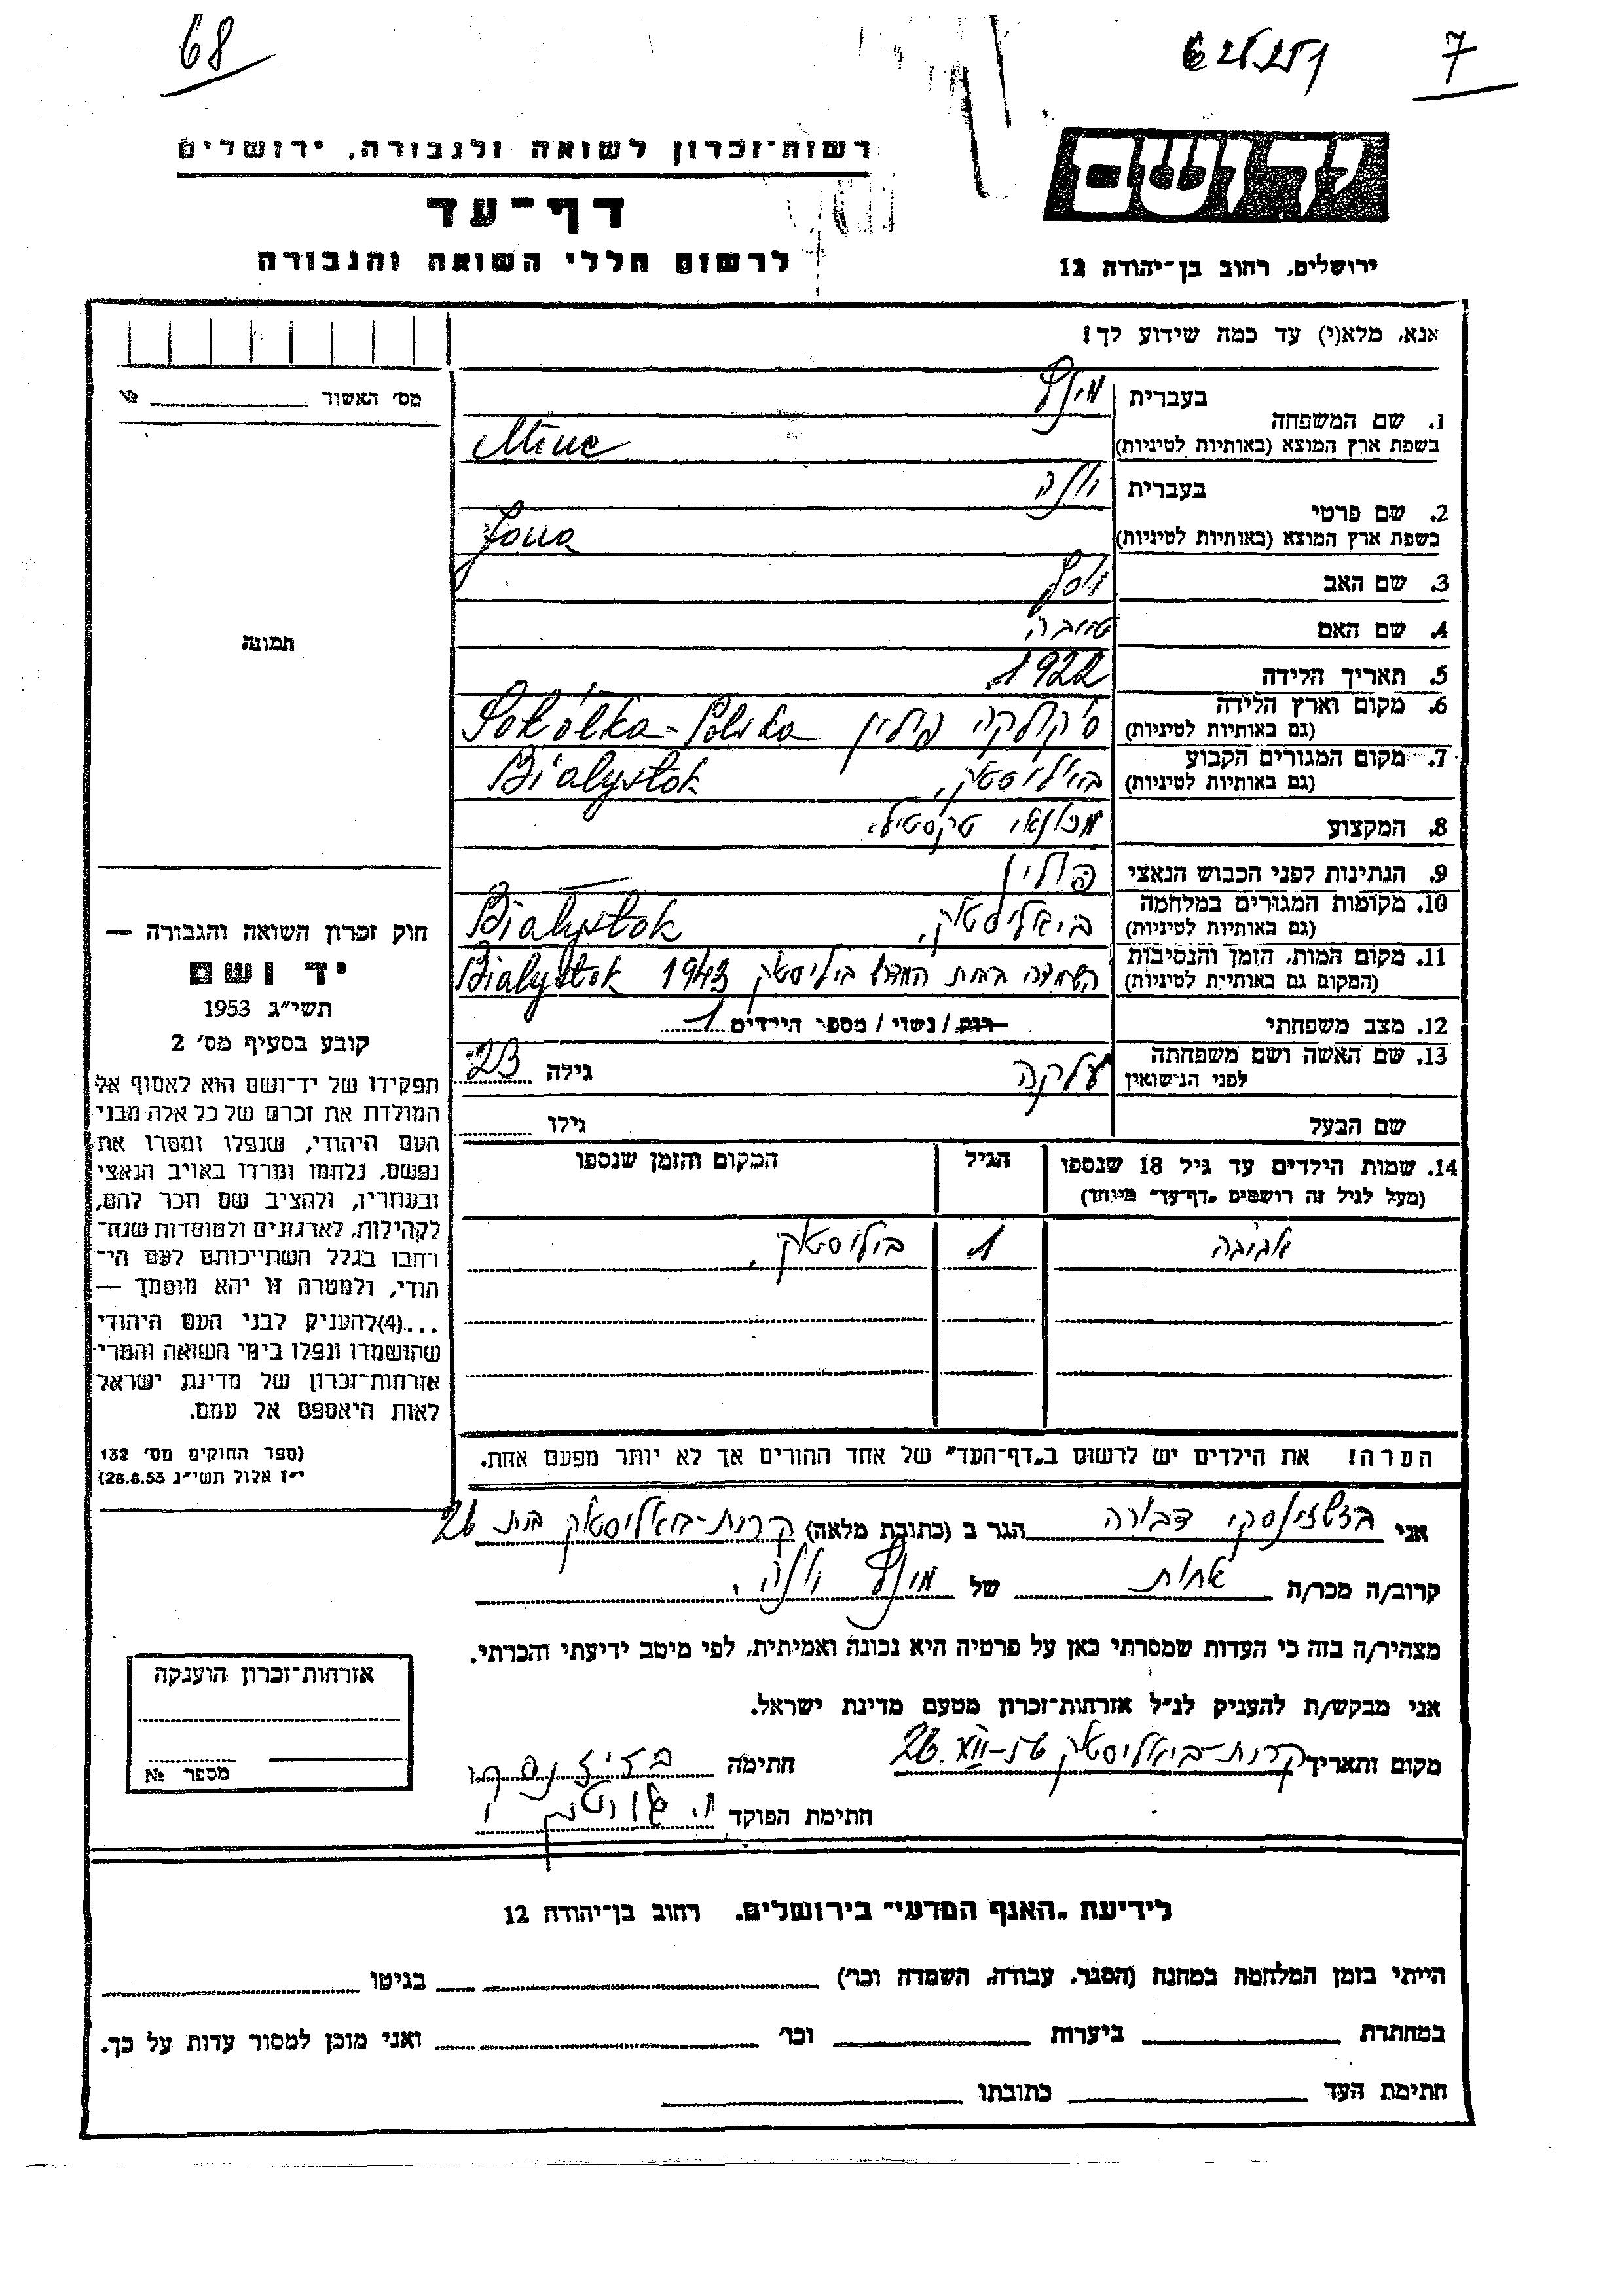 68
7
רשות־זכרון לשואה ולגבורה, ירושלים
דף־עד
לרשום חללי השואה והגבורה
יד ושם
ירושלים, רחוב בן־יהודה 12
אנא, מלא(י) עד כמה שידוע לך!
מס׳ האשור № 
1. שם המשפחה
בעברית
בשפת ארץ המוצא (באותיות לטיניות)
2. שם פרטי
בעברית יונה
בשפת ארץ המוצא (באותיות לטיניות) Jona
3. שם האב יוסף
4. שם האם טייבה
5. תאריך הלידה 1922
6. מקום וארץ הלידה
(גם באותיות לטיניות) פולין Sokólka - Polska
7. מקום המגורים הקבוע
(גם באותיות לטיניות) Bialystok
8. המקצוע
9. הנתינות לפני הכבוש הנאצי פולין
10. מקומות המגורים במלחמה
(גם באותיות לטיניות) ביאליסטוק, Bialystok
11. מקום המות, הזמן והנסיבות
(המקום גם באותיית לטיניות) 1943 Bialystok
12. מצב משפחתי רוק/נשוי/מספר הילדים 1
13. שם האשה ושם משפחתה
לפני הנישואין גילה 23
שם הבעל גילו
14. שמות הילדים עד גיל 18 שנספו הגיל המקום והזמן שנספו
(מעל לגיל זה רושמים „דף־עד״ מיוחד)
1
הערה! את הילדים יש לרשום ב„דף־העד״ של אחד ההורים אך לא יותר מפעם אחת.
תמונה
חוק זכרון השואה והגבורה —
יד ושם
תשי״ג 1953
קובע בסעיף מס׳ 2
תפקידו של יד־ושם הוא לאסוף אל
המולדת את זכרם של כל אלה מבני
העם היהודי, שנפלו ומסרו את
נפשם, נלחמו ומרדו באויב הנאצי
ובעוזריו, ולהציב שם וזכר להם,
לקהילות, לארגונים ולמוסדות שנח־
רחבו בגלל השתייכותם לעם הי־
הודי, ולמטרה זו יהא מוסמך —
...(4)להעניק לבני העם היהודי
שהושמדו ונפלו בימי השואה והמרי
אזרחות־זכרון של מדינת ישראל
לאות היאספם אל עמם.
(ספר החוקים מס׳ 132
י״ז אלול תשי״ג 28.8.53)
אני דבורה הגר ב (כתובת מלאה) קרית־ביאליסטוק 26
קרוב/ה מכר/ה אחות של יונה.
מצהיר/ה בזה כי העדות שמסרתי כאן על פרטיה היא נכונה ואמיתית, לפי מיטב ידיעתי והכרתי.
אני מבקש/ת להעניק לנ״ל אזרחות־זכרון מטעם מדינת ישראל.
מקום ותאריך קרית־ביאליסטוק חתימה
חתימת הפוקד
אזרחות־זכרון הוענקה
מספר №
לידיעת „האגף המדעי״ בירושלים, רחוב בן־יהודה 12
הייתי בזמן המלחמה במחנה (הסגר, עבודה, השמדה וכו׳) בגיטו
במחתרת ביערות וכו׳ ואני מוכן למסור עדות על כך.
חתימת העד כתובתו